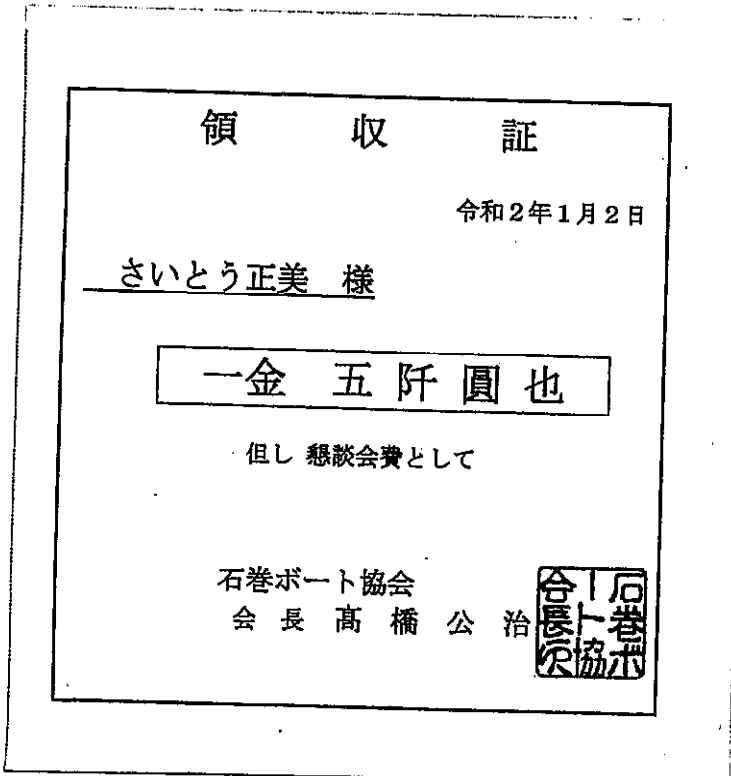 領収証
令和2年1月2日
さいとう正美 様
一金 五阡圓也
但し 懇談会費として
石巻ボート協会
会長 髙橋公治
石巻ボ
ート協
会長之